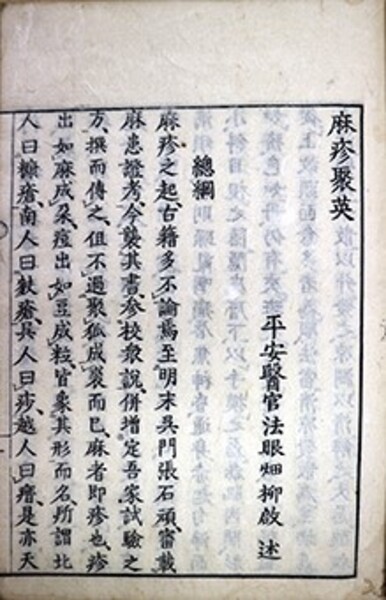 麻疹聚英
平安醫官法眼畑柳啟 述
總綱
麻疹之起古籍多不論焉至明末吳門張石頑甯載
麻患證考今襲其書參挍衆說併增定吾家試驗之
方撰而傳之但不過聚狐成裘而已麻者即疹也疹
出如麻成朵痘出如豆成粒皆象其形而名所謂北
人曰糠瘡南人曰麩瘡吳人曰痧越人曰瘄是亦天